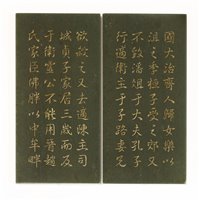 國大治齊人歸女樂以
沮之季桓子受之郊又
不致膰俎于大夫孔子
行適衛主于子路妻兄
欲殺之又去適陳主司
城貞子家居三歲而反
于衛靈公不能用晉趙
氏家臣佛肸以中牟畔